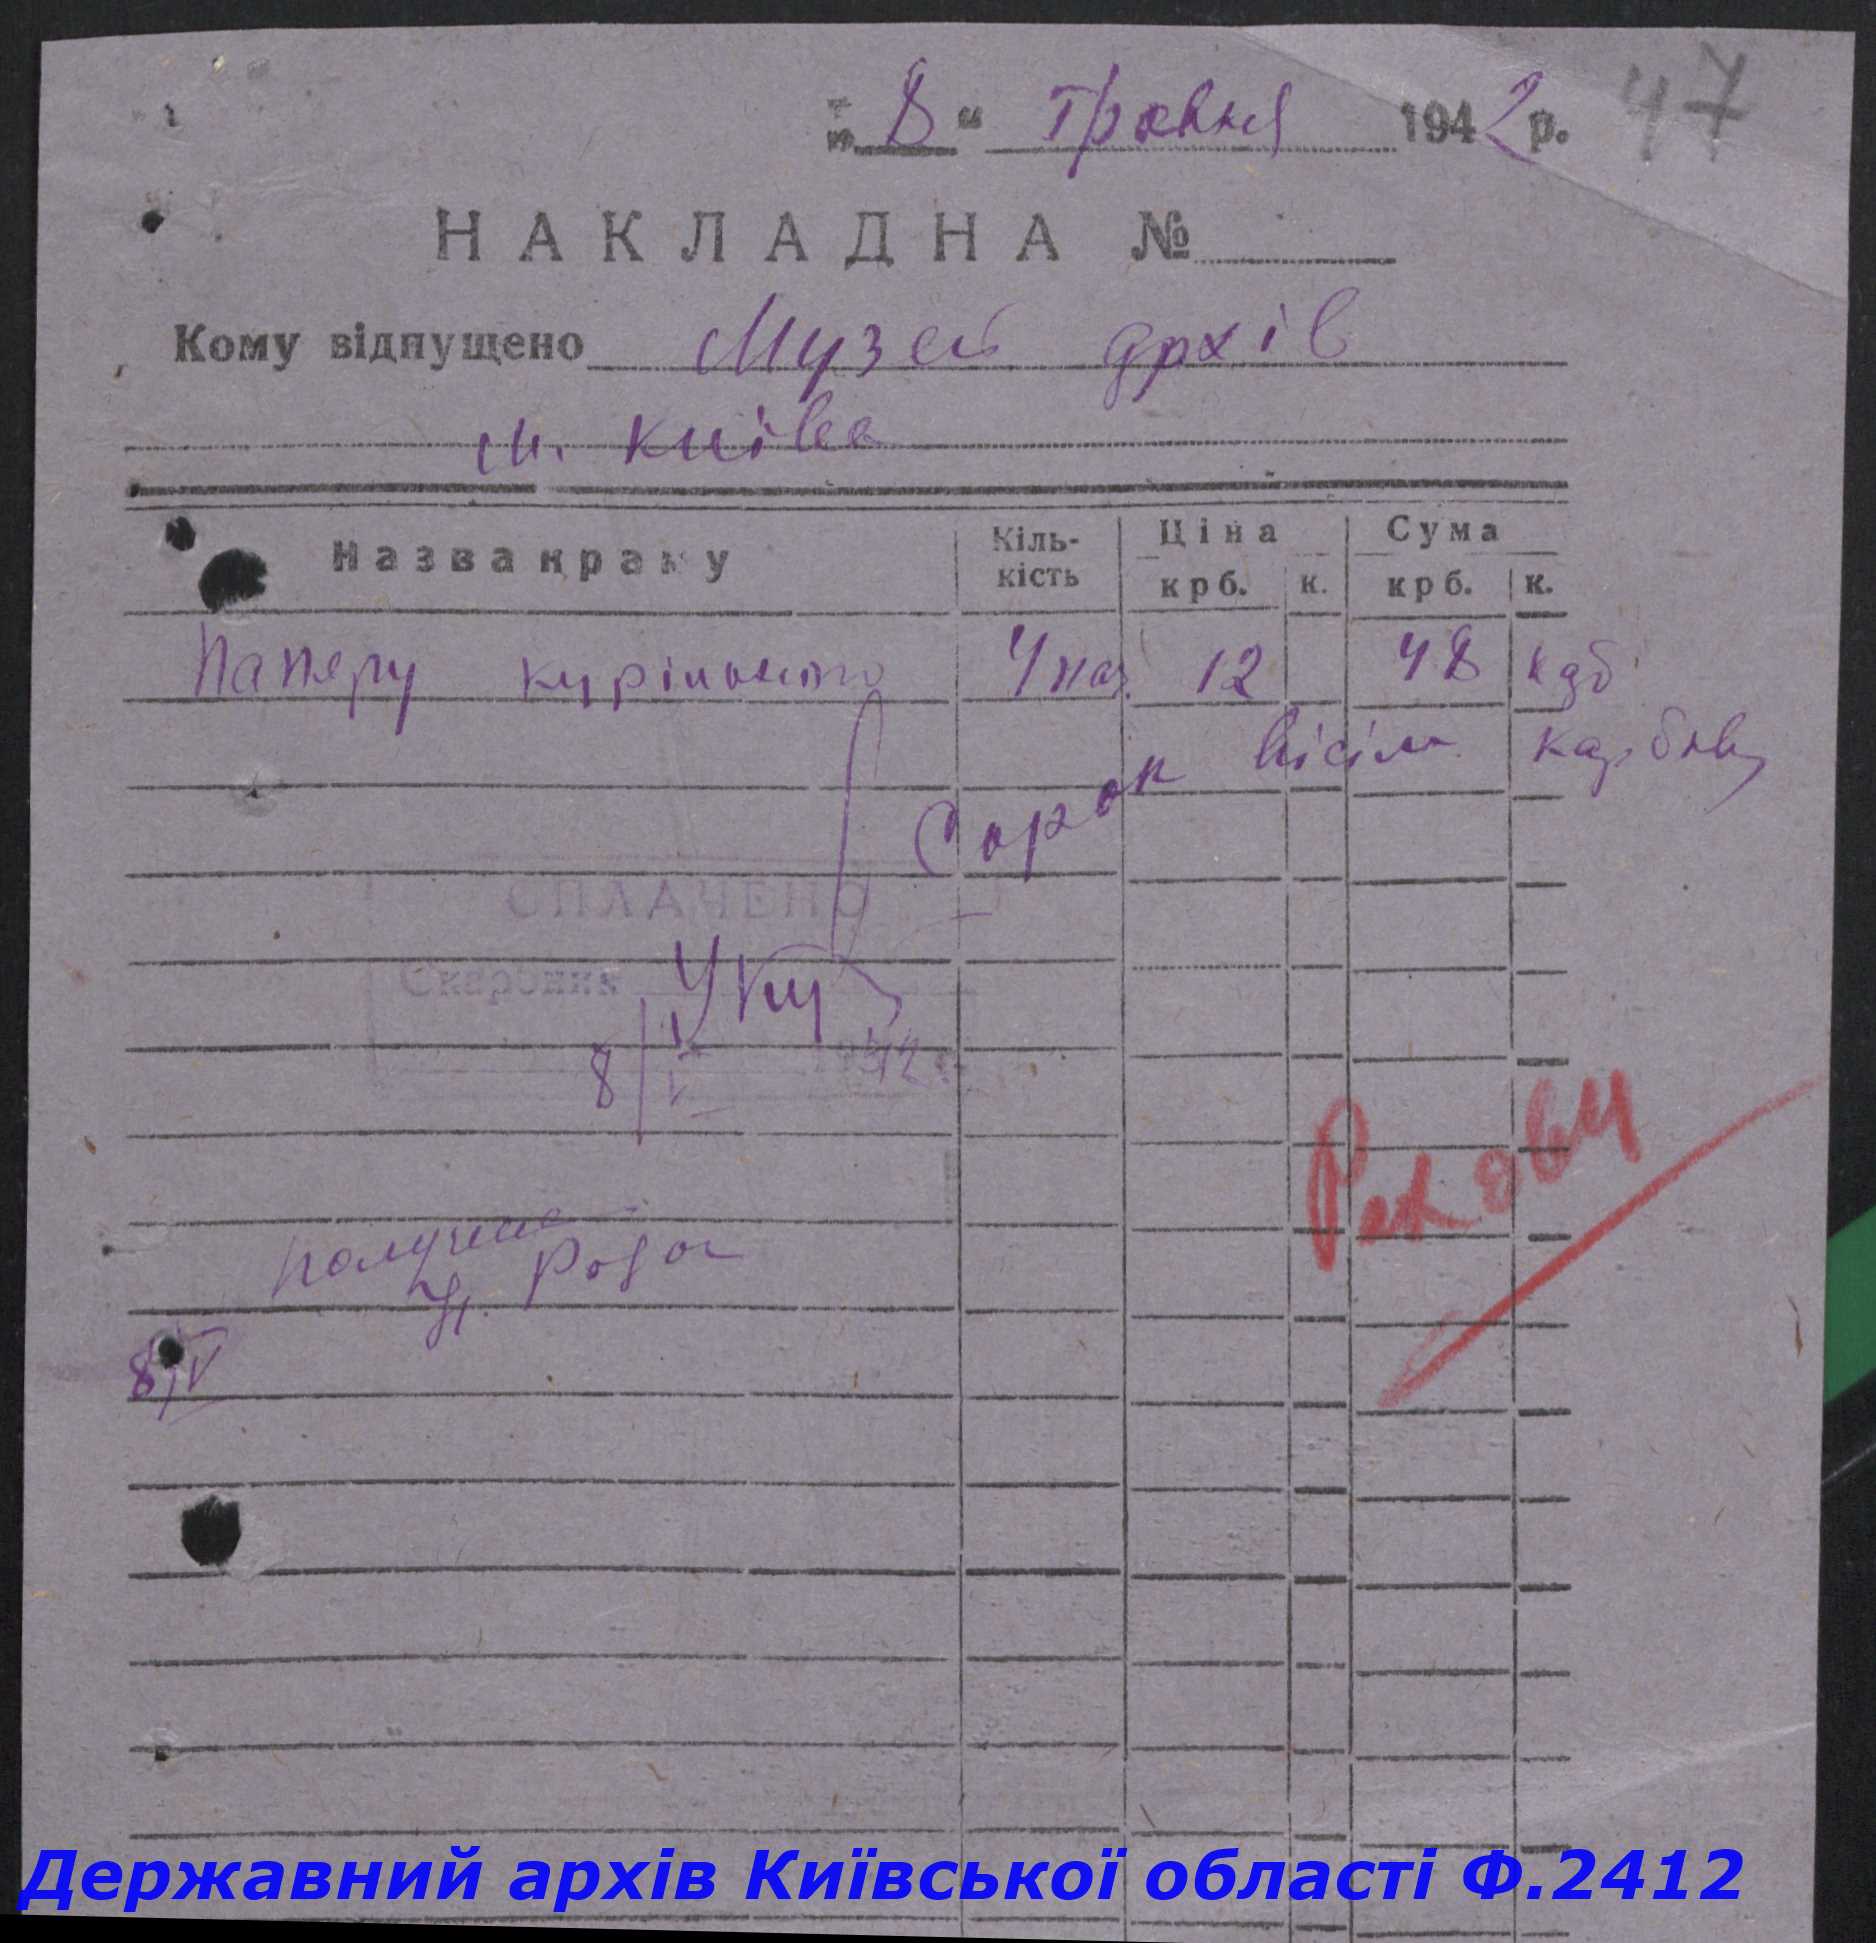 47
"8" Травня 1942 р.
НАКЛАДНА №
Кому відпущено Музей Архів
м. Київа
Назва краму Кіль-кість Ціна крб. к. Сума крб. к.
Паперу курільного 4 пач. 12 48 крб
Сорок вісім карбов
СПЛАЧЕНО
Скарбник
8/V 1942 р.
получив
8/V
Державний архів Київської області Ф.2412